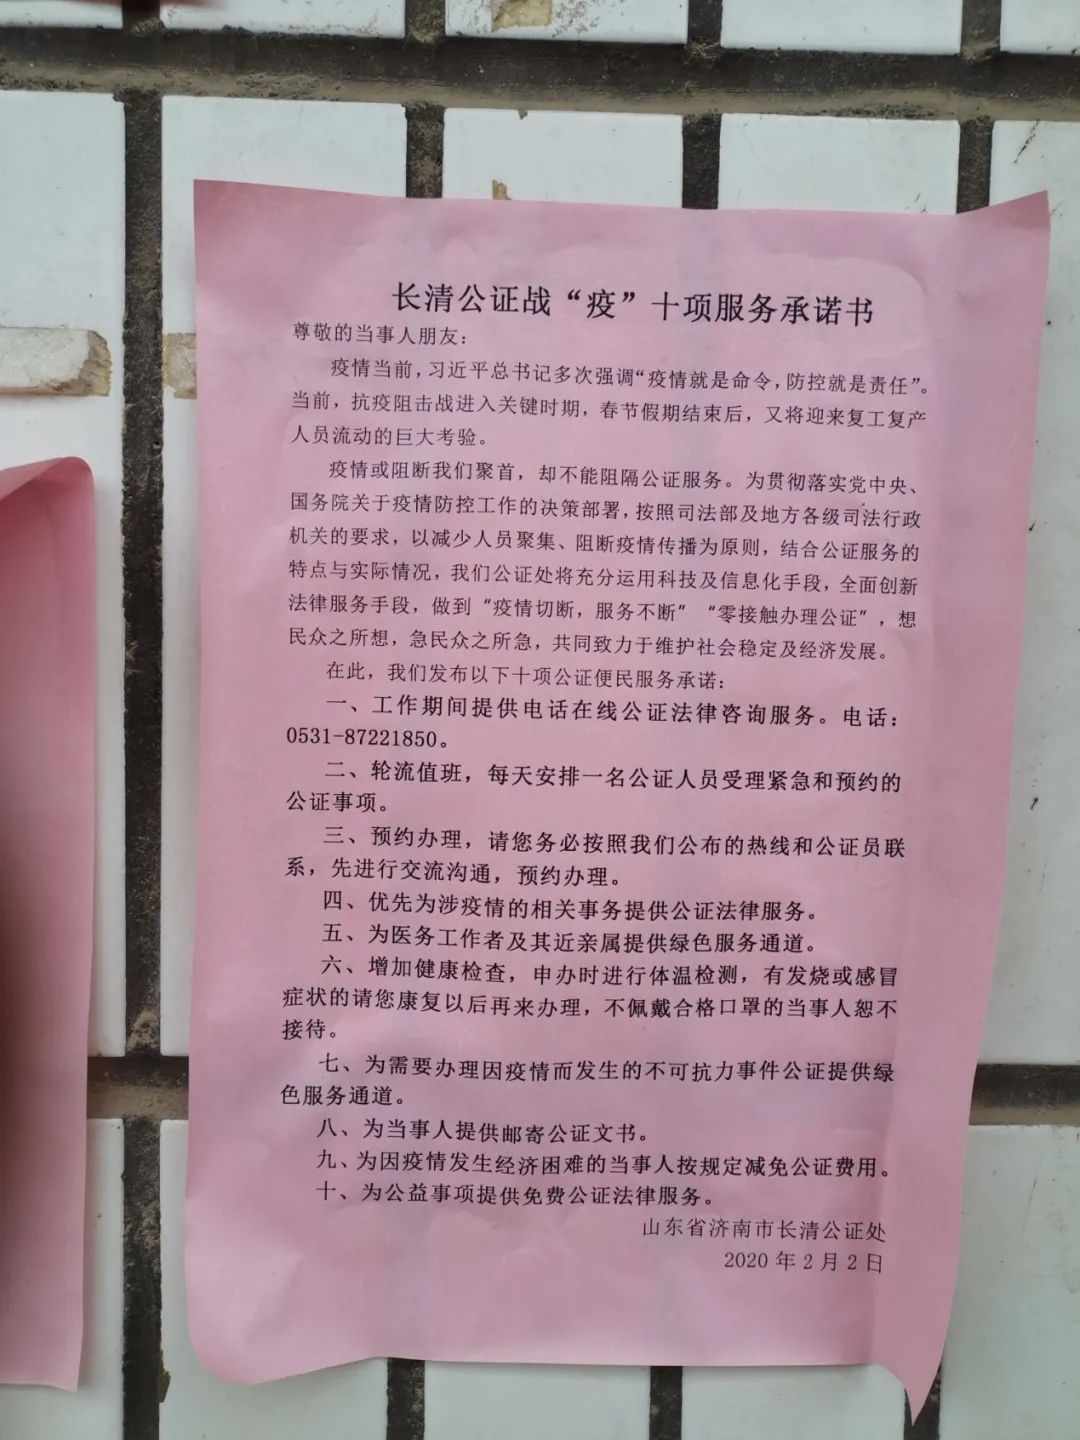 长清公证战“疫”十项服务承诺书
尊敬的当事人朋友：
疫情当前，习近平总书记多次强调“疫情就是命令，防控就是责任”。
当前，抗疫阻击战进入关键时期，春节假期结束后，又将迎来复工复产
人员流动的巨大考验。
疫情或阻断我们聚首，却不能阻隔公证服务。为贯彻落实党中央、
国务院关于疫情防控工作的决策部署，按照司法部及地方各级司法行政
机关的要求，以减少人员聚集、阻断疫情传播为原则，结合公证服务的
特点与实际情况，我们公证处将充分运用科技及信息化手段，全面创新
法律服务手段，做到“疫情切断，服务不断”“零接触办理公证”，想
民众之所想，急民众之所急，共同致力于维护社会稳定及经济发展。
在此，我们发布以下十项公证便民服务承诺：
一、工作期间提供电话在线公证法律咨询服务。电话：
0531-87221850。
二、轮流值班，每天安排一名公证人员受理紧急和预约的
公证事项。
三、预约办理，请您务必按照我们公布的热线和公证员联
系，先进行交流沟通，预约办理。
四、优先为涉疫情的相关事务提供公证法律服务。
五、为医务工作者及其近亲属提供绿色服务通道。
六、增加健康检查，申办时进行体温检测，有发烧或感冒
症状的请您康复以后再来办理，不佩戴合格口罩的当事人恕不
接待。
七、为需要办理因疫情而发生的不可抗力事件公证提供绿
色服务通道。
八、为当事人提供邮寄公证文书。
九、为因疫情发生经济困难的当事人按规定减免公证费用。
十、为公益事项提供免费公证法律服务。
山东省济南市长清公证处
2020年2月2日